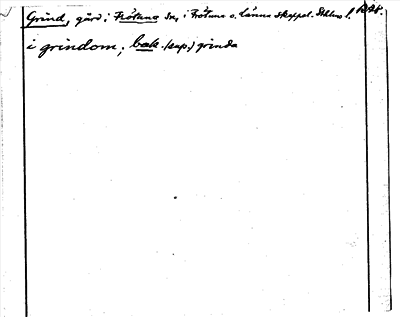 Grind, gård i Frötuna sn, i Frötuna o. Länna skeppsl. Sthlms l.
i grindom; bak (sup.) grinda